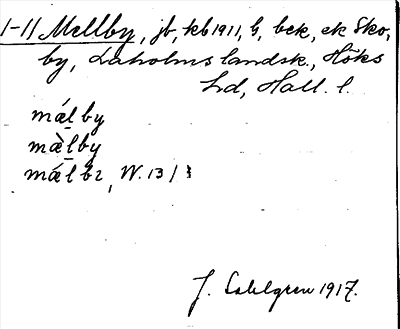 1-11 Mellby, jb, kb 1911, h, bek, ek Sko,
by, Laholms landsk., Höks
hd, Hall. l.
mǽl̠by
mæ̀l̠by
mǽl̠bɩ, W. 13/3
J. Sahlgren 1917.